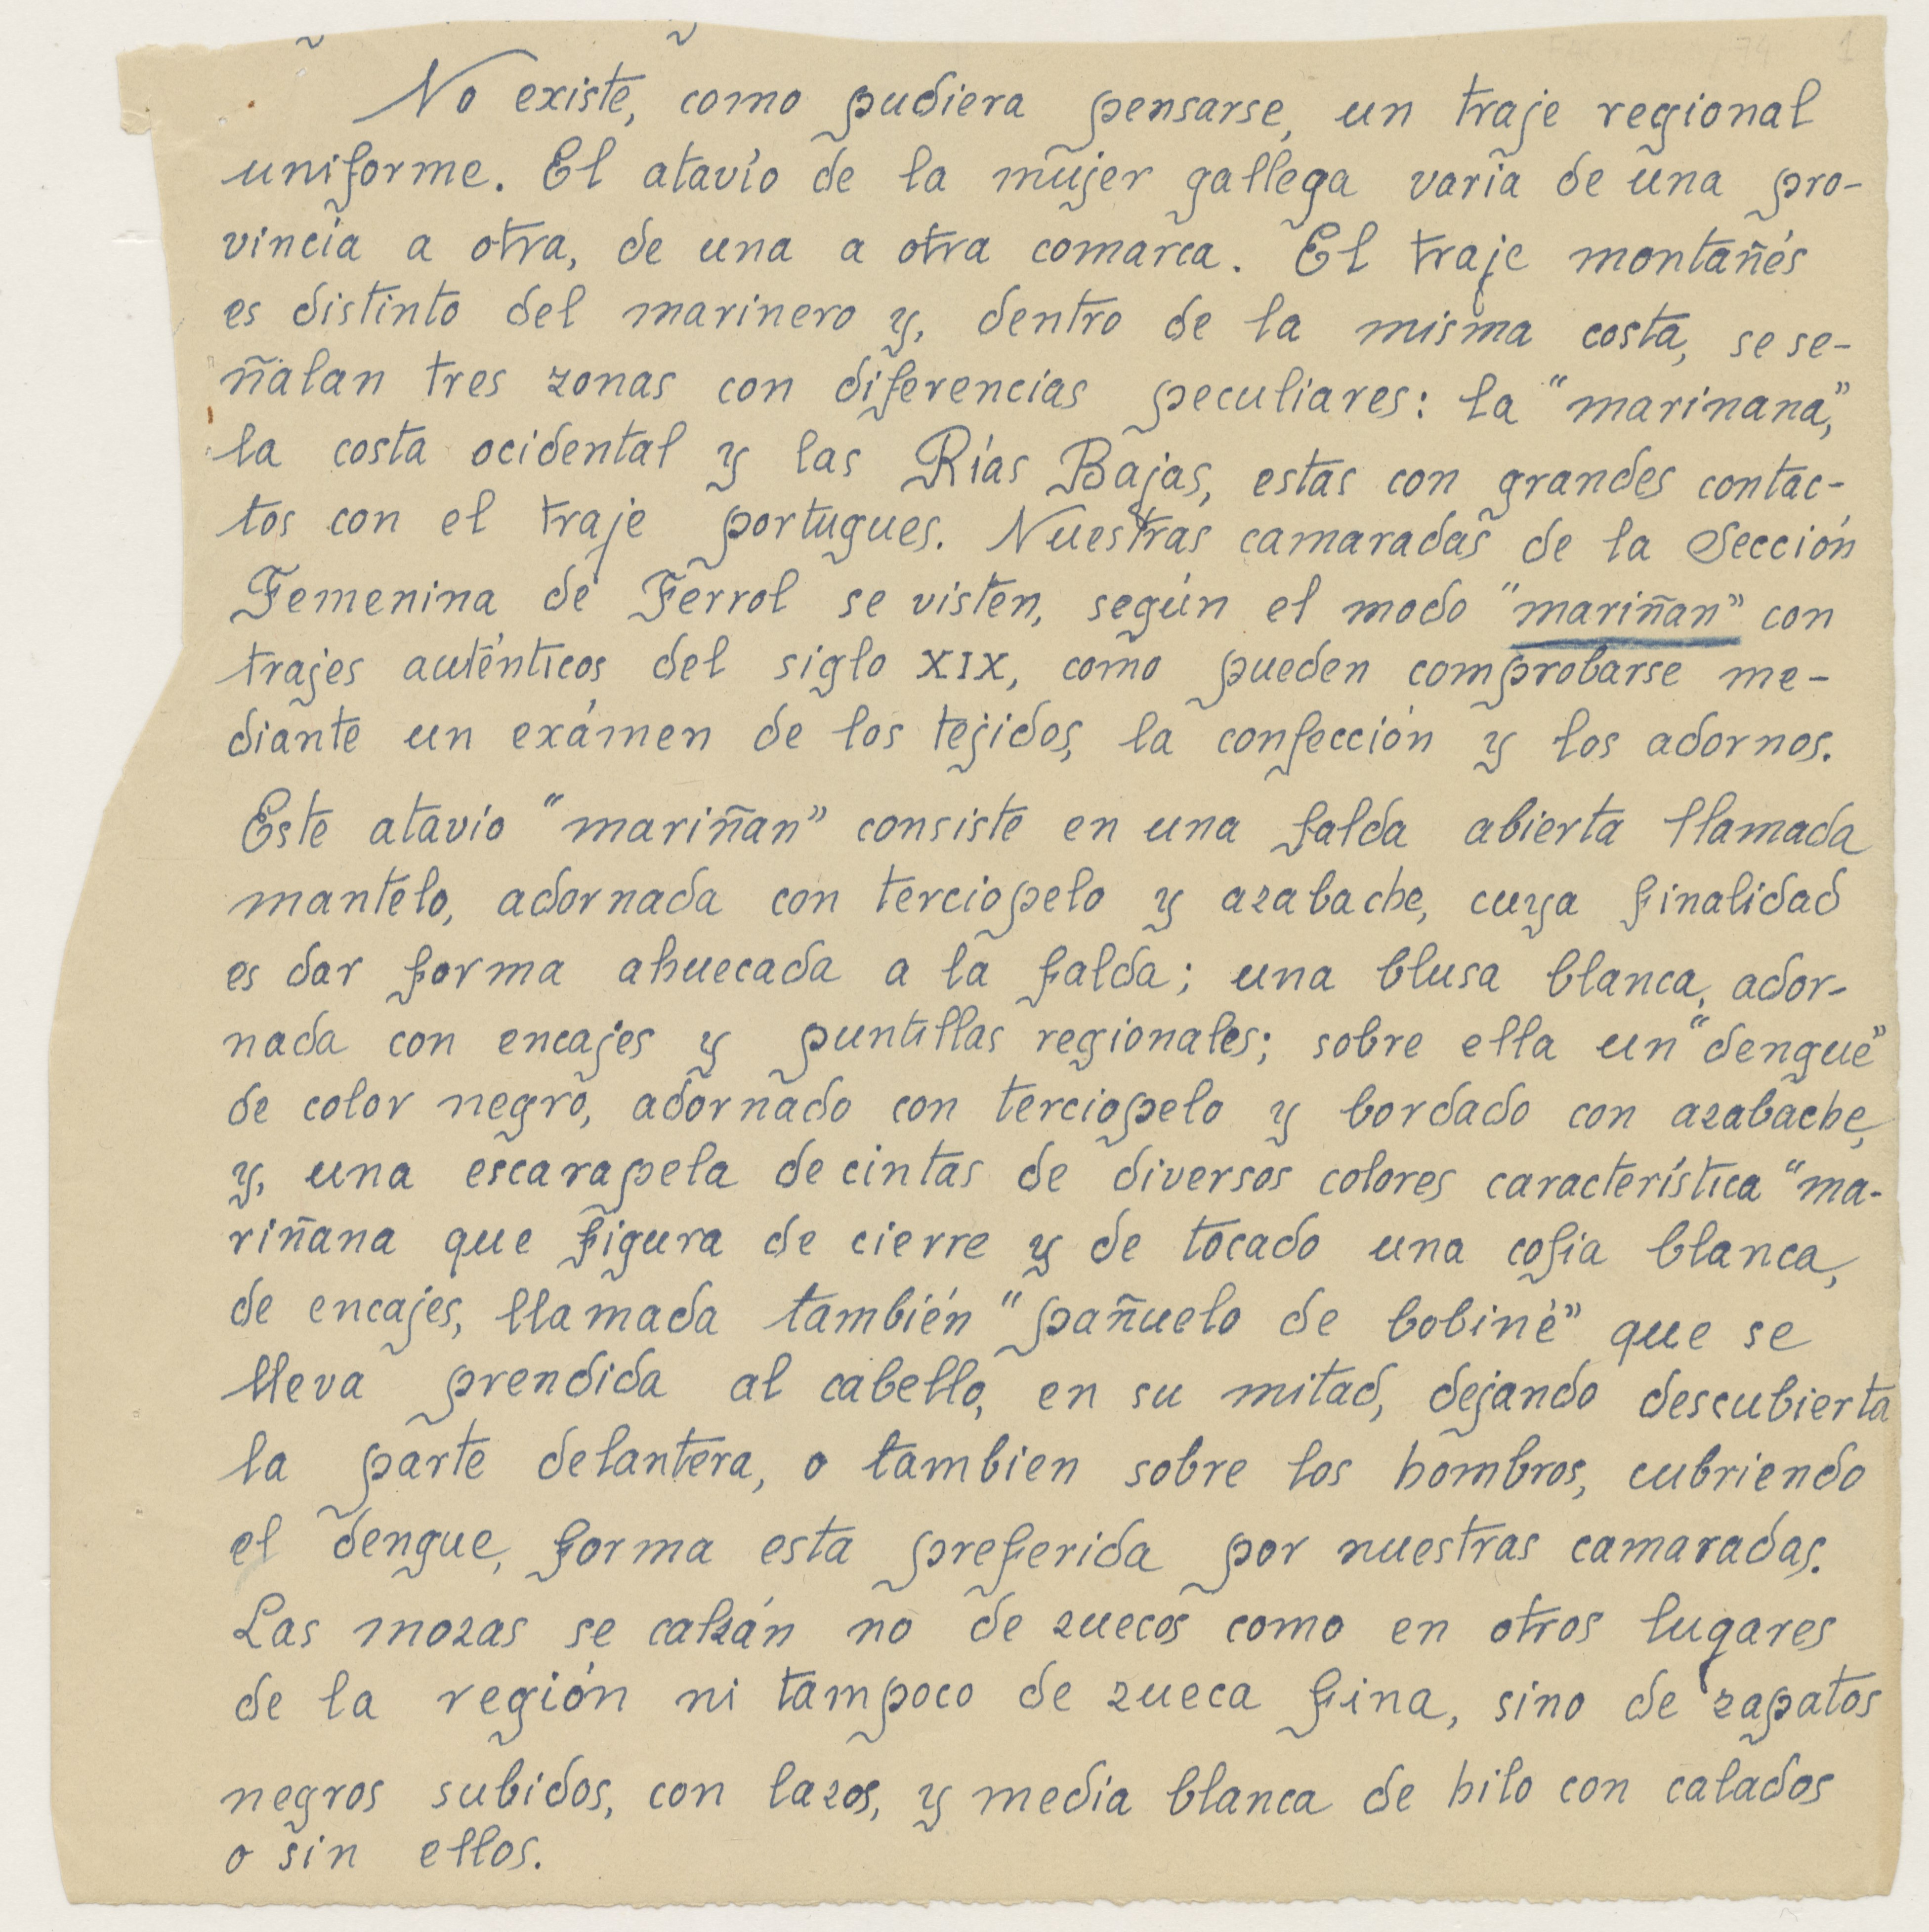 No existe, como pudiera pensarse, un traje regional
uniforme. El atavío de la mujer gallega varia de una pro-
vincia a otra, de una a otra comarca. El traje montañés
es distinto del marinero y, dentro de la misma costa, se se-
ñalan tres zonas con diferencias peculiares: la "marinana",
la costa ocidental y las Rías Bajas, estas con grandes contac-
tos con el traje portugues. Nuestras camaradas de la Sección
Femenina de Ferrol se visten, según el modo "mariñan" con
trajes auténticos del siglo XIX, como pueden comprobarse me-
diante un exámen de los tejidos, la confección y los adornos.
Este atavio "mariñan" consiste en una falda abierta llamada
mantelo, adornada con terciopelo y azabache, cuya finalidad
es dar forma ahuecada a la falda; una blusa blanca, ador-
nada con encajes y puntillas regionales; sobre ella un "dengue"
de color negro, adornado con terciopelo y bordado con azabache,
y, una escarapela de cintas de diversos colores característica "ma-
riñana que figura de cierre y de tocado una cofia blanca,
de encajes, llamada también "pañuelo de bobiné" que se
lleva prendida al cabello, en su mitad, dejando descubierta
la parte delantera, o tambien sobre los hombros, cubriendo
el dengue, forma esta preferida por nuestras camaradas.
Las mozas se calzán no de zuecos como en otros lugares
de la región ni tampoco de zueca fina, sino de zapatos
negros subidos, con lazos, y media blanca de hilo con calados
o sin ellos.